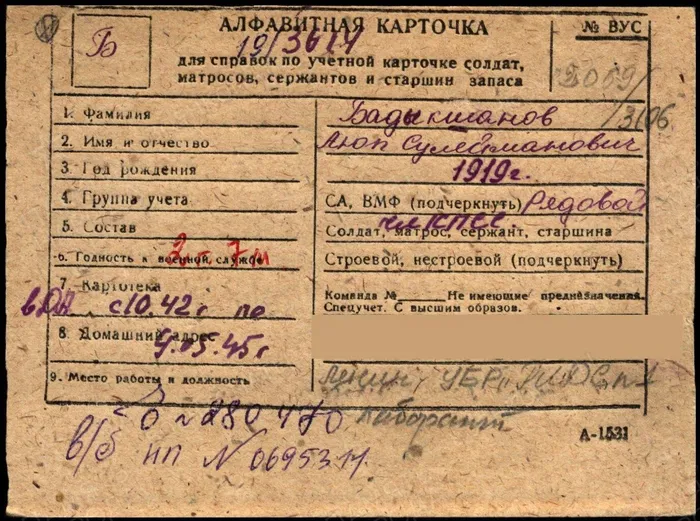 Б
АЛФАВИТНАЯ КАРТОЧКА
19/3614
для справок по учетной карточке солдат,
матросов, сержантов и старшин запаса
№ ВУС
3106
1. Фамилия
Бадыкшанов
2. Имя и отчество
Аюп Сулейманович
3. Год рождения
1919г.
4. Группа учета
СА, ВМФ (подчеркнуть) Рядовой
5. Состав
чл КПСС.
Солдат, матрос, сержант, старшина
6. Годность к военной службе
Строевой, нестроевой (подчеркнуть)
7. Картотека
Команда № Не имеющие предназначен.
Спецучет. С высшим образов.
с 10.42 г по
8. Домашний адрес
9.05.45г
9. Место работы и должность
Ленин, УБР,
лаборант
в/б НП N
А-1531